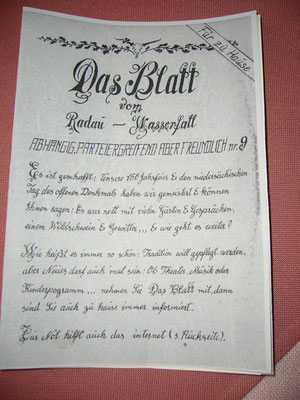 Für zu Hause
Das Blatt
vom
Radau - Wasserfall
ABHÄNGIG, PARTEIERGREIFEND ABER FREUNDLICH Nr. 9
Es ist geschafft: Unsere 150 Jahrfeier & den niedersächsischen
Tag des offenen Denkmals haben wir gemeistert & können
Ihnen sagen: Es war nett mit vielen Gästen & Gesprächen,
einem Wildschwein & Gewitter... & wie geht es weiter?
Wie heißt es immer so schön: Tradition will gepflegt werden,
aber Neues darf auch mal sein! Ob Theater, Musik oder
Kinderprogramm... nehmen Sie Das Blatt mit, dann
sind Sie auch zu hause immer informiert.
Zur Not hilft auch das internet (s. Rückseite).